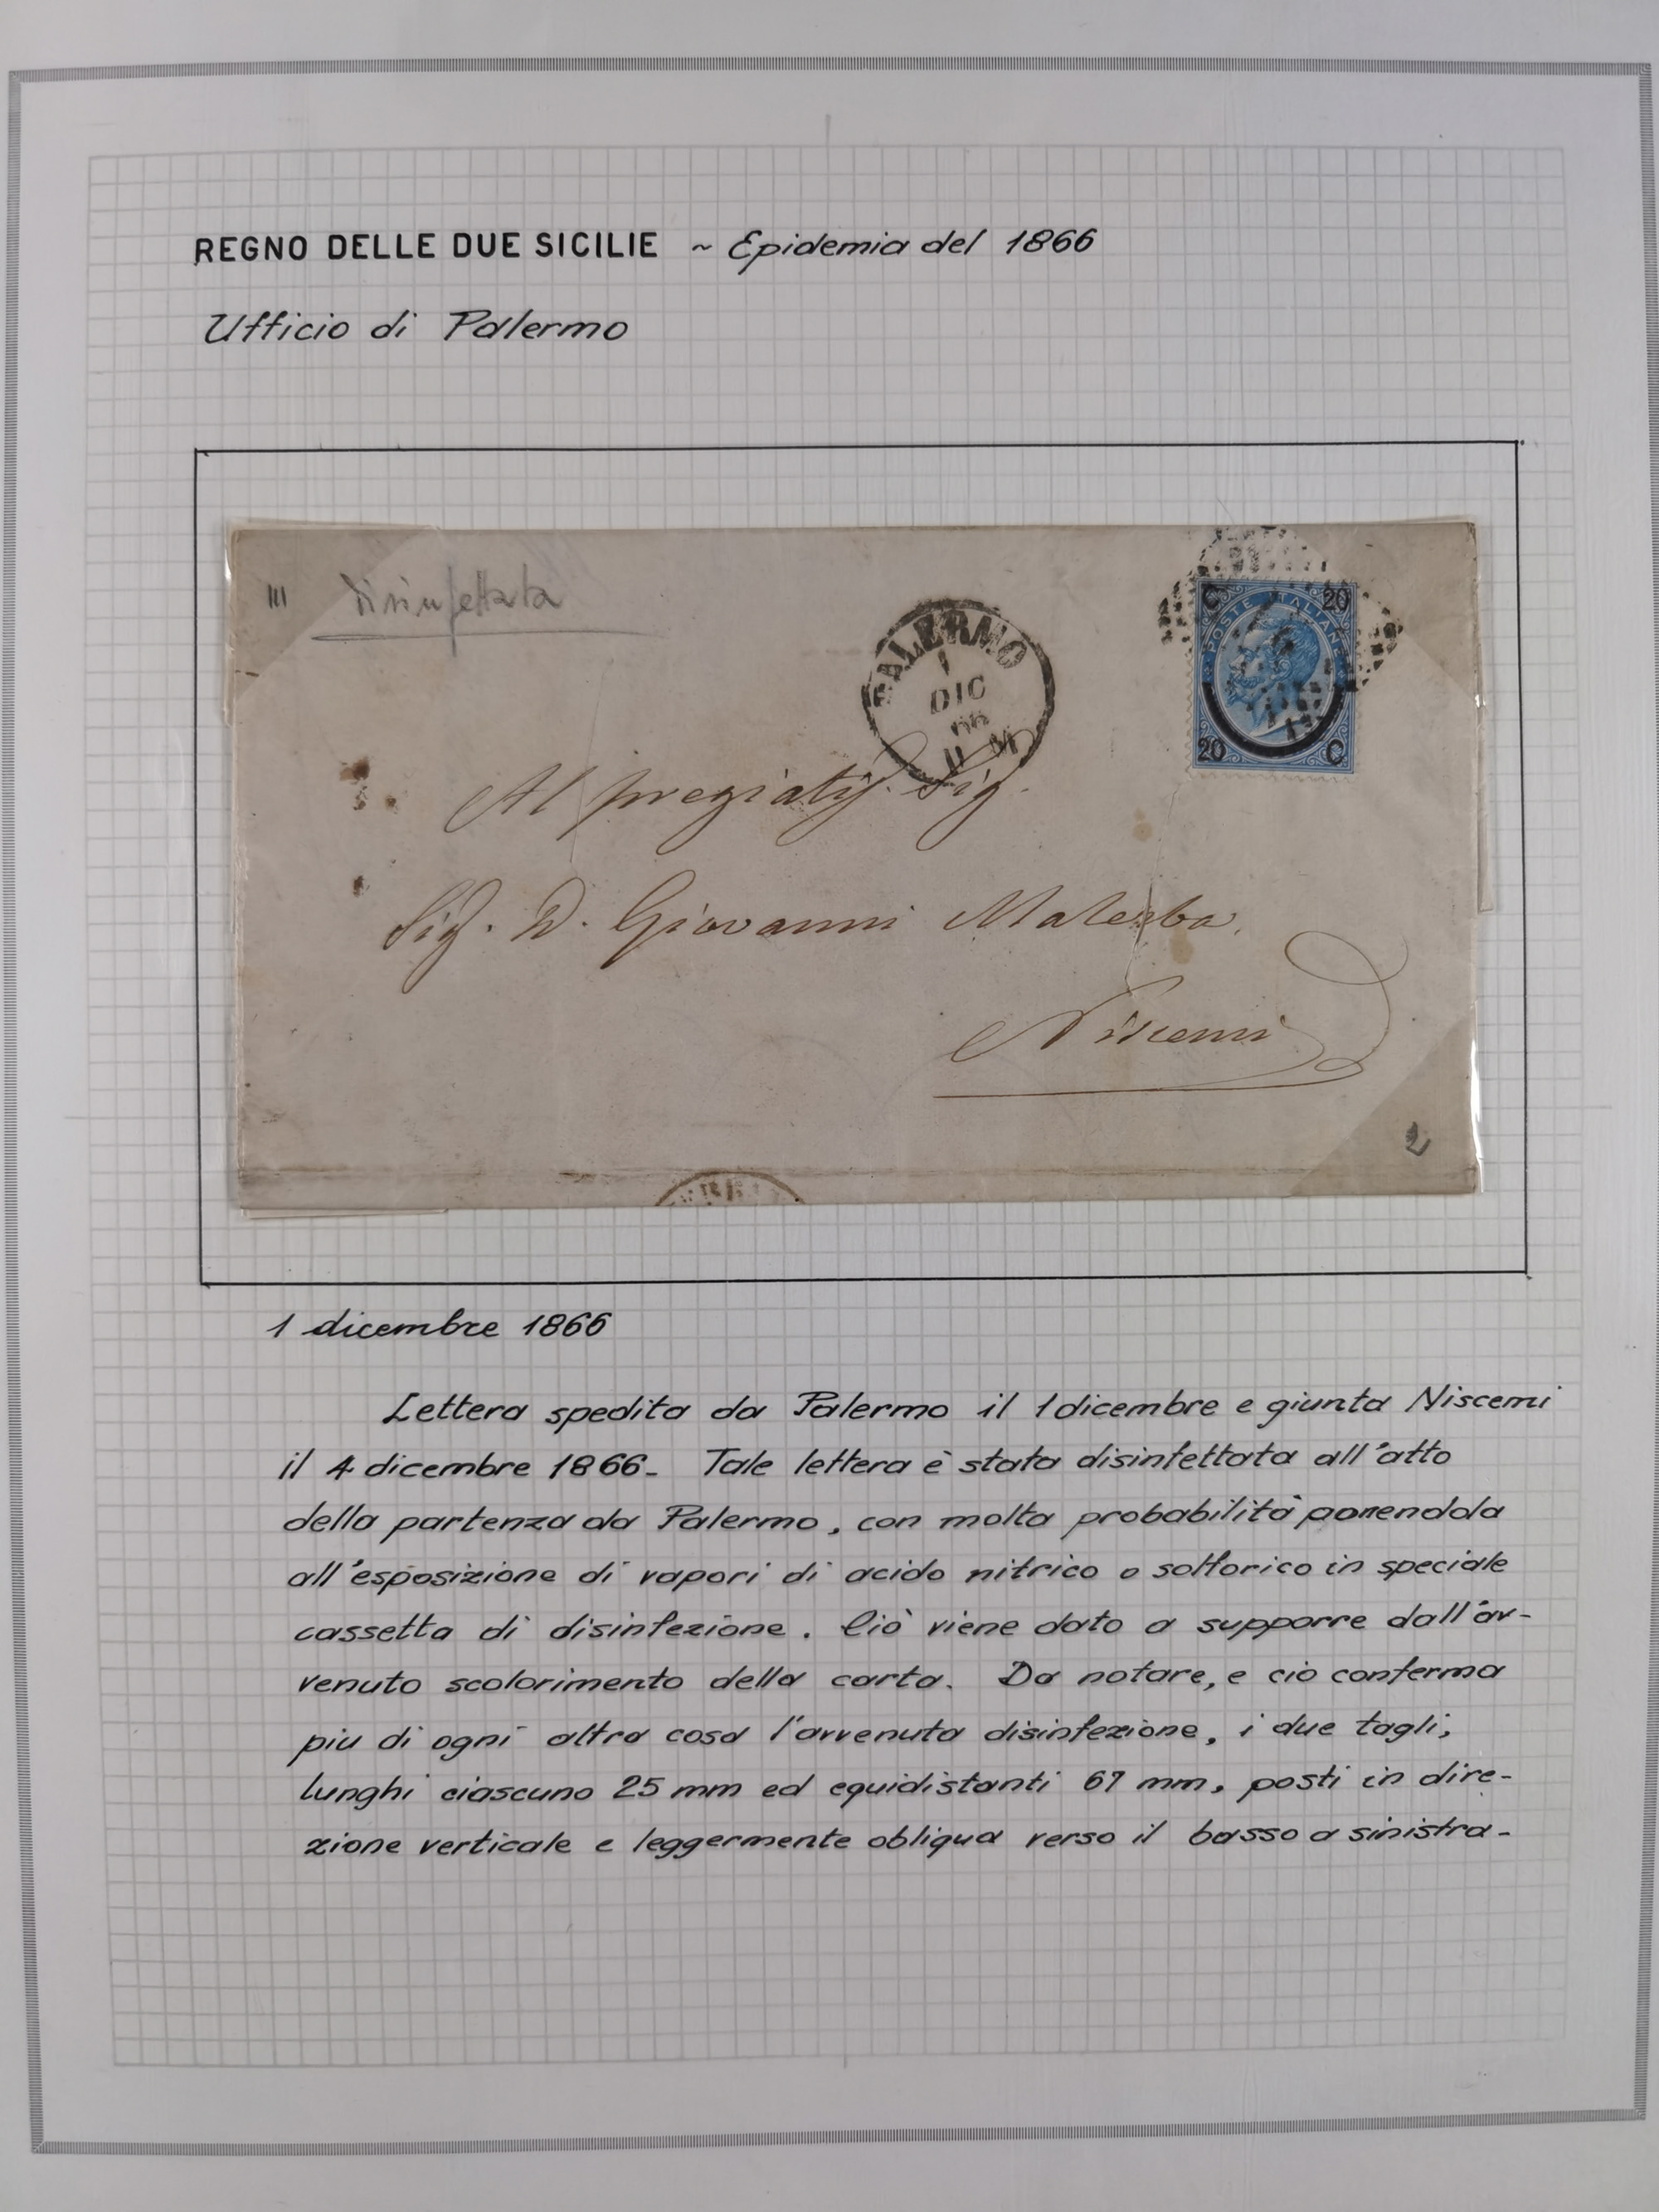 REGNO DELLE DUE SICILIE ~ Epidemia del 1866
Ufficio di Palermo
III disinfettata
PALERMO
1
DIC
66
C 20
POSTE ITALIANE
20 C
Al pregiatiss. Sig.
Sig. D. Giovanni Malerba
Niscemi
2
1 dicembre 1866
Lettera spedita da Palermo il 1 dicembre e giunta Niscemi
il 4 dicembre 1866. Tale lettera è stata disinfettata all'atto
della partenza da Palermo, con molta probabilità ponendola
all'esposizione di vapori di acido nitrico o solforico in speciale
cassetta di disinfezione. Ciò viene dato a supporre dall'av-
venuto scolorimento della carta. Da notare, e ciò conferma
piu di ogni altra cosa l'avvenuta disinfezione, i due tagli,
lunghi ciascuno 25 mm ed equidistanti 67 mm, posti in dire-
zione verticale e leggermente obliqua verso il basso a sinistra-